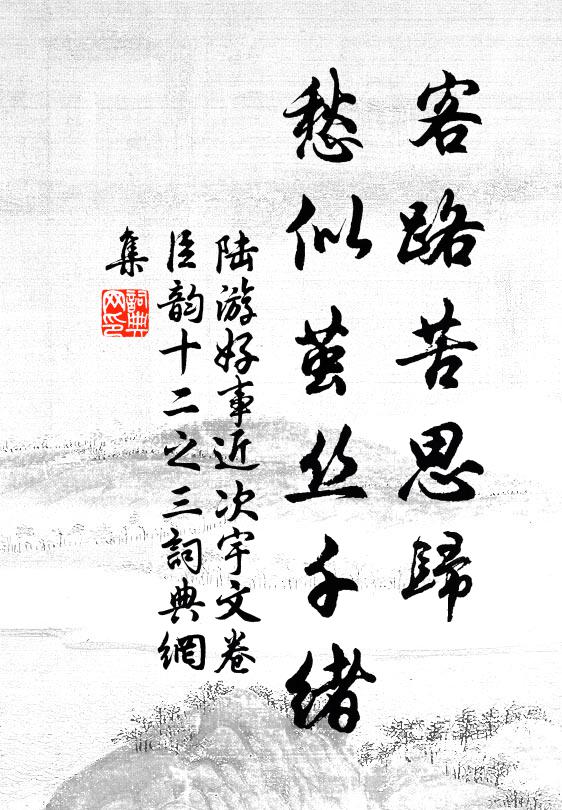 客路苦思歸
愁似茧丝千绪
陆游好事近次宇文卷
臣韵十二之三詞典網
集
詞典
网印